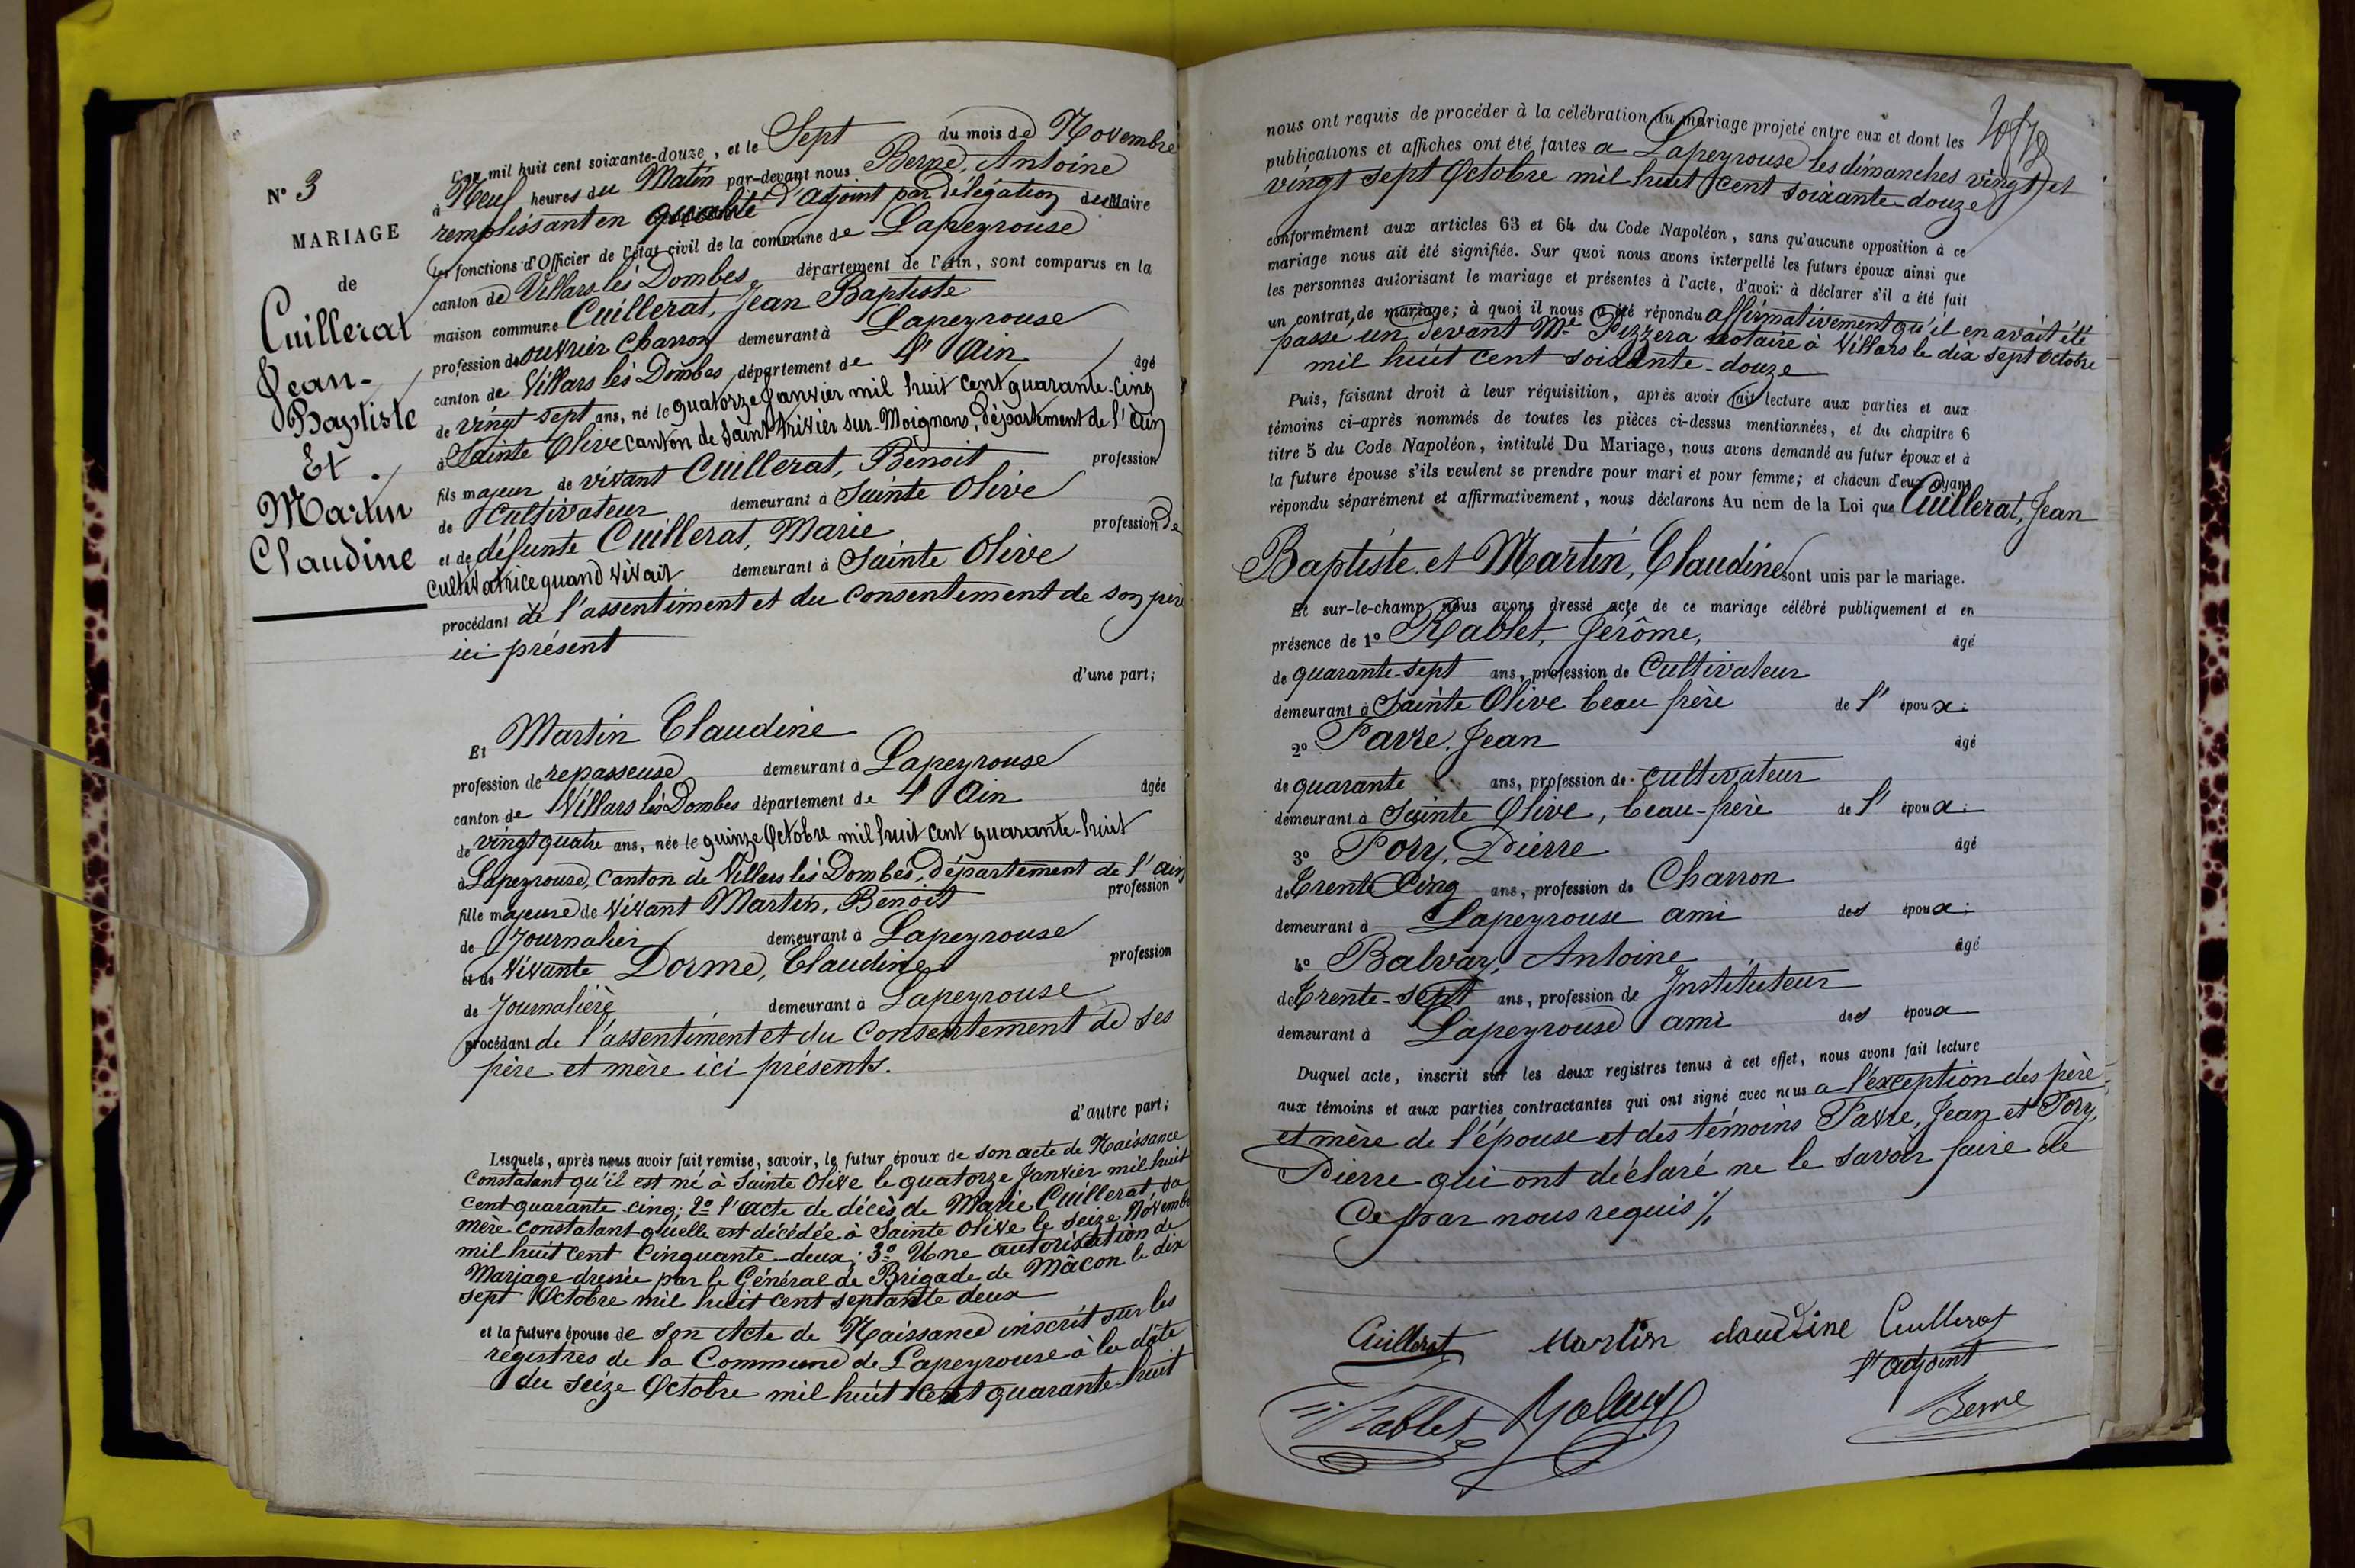 N° 3
MARIAGE
de
Cuillerat
Jean-
Baptiste
Et
Martin
Claudine
L'an mil huit cent soixante-douze, et le Sept du mois de Novembre
à Neuf heures du Matin par-devant nous Berne, Antoine
remplissant en qualité d'adjoint par délégation du Maire
les fonctions d'Officier de l'état-civil de la commune de Lapeyrouse
canton de Villars les Dombes, département de l'Ain, sont comparus en la
maison commune Cuillerat, Jean Baptiste
profession de ouvrier Charron demeurant à Lapeyrouse
canton de Villars les Dombes département de l'Ain âgé
de vingt sept ans, né le quatorze Janvier mil huit cent quarante-cinq
à Sainte Olive canton de Saint Trivier sur-Moignans, département de l'Ain
fils majeur de vivant Cuillerat, Benoit profession
de Cultivateur demeurant à Sainte Olive
et de défunte Cuillerat, Marie profession de
Cultivatrice quand vivait demeurant à Sainte Olive
procédant de l'assentiment et du consentement de son père
ici présent
d'une part;
Et Martin Claudine
profession de repasseuse demeurant à Lapeyrouse
canton de Villars les Dombes département de l'Ain âgée
de vingt quatre ans, née le quinze Octobre mil huit cent quarante-huit
à Lapeyrouse, Canton de Villars les Dombes, département de l'Ain
fille majeure de vivant Martin, Benoit profession
de Journalier demeurant à Lapeyrouse
et de vivante Dorme, Claudine profession
de Journalière demeurant à Lapeyrouse
procédant de l'assentiment et du Consentement de ses
père et mère ici présents.
d'autre part;
Lesquels, après nous avoir fait remise, savoir, le futur époux de son acte de Naissance
Constatant qu'il est né à Sainte Olive le quatorze Janvier mil huit
cent quarante-cinq; 2° l'acte de décès de Marie Cuillerat, sa
mère constatant quelle est décédée à Sainte Olive le seize Novembre
mil huit cent Cinquante-deux; 3° Une autorisation de
Mariage dressée par le Général de Brigade de Mâcon le dix
sept Octobre mil huit cent septante deux
et la future épouse de son Acte de Naissance inscrit sur les
régistres de la Commune de Lapeyrouse à la date
du seize Octobre mil huit cent quarante-huit
nous ont requis de procéder à la célébration du mariage projeté entre eux et dont les
publications et affiches ont été faites a Lapeyrouse les dimanches vingt et
vingt sept Octobre mil huit cent soixante-douze
conformément aux articles 63 et 64 du Code Napoléon, sans qu'aucune opposition à ce
mariage nous ait été signifiée. Sur quoi nous avons interpellé les futurs époux ainsi que
les personnes autorisant le mariage et présentes à l'acte, d'avoir à déclarer s'il a été fait
un contrat de mariage; à quoi il nous a été répondu affirmativement qu'il en avait été
passé un devant Me Pizzera notaire à Villars le dix sept Octobre
mil huit cent soixante-douze
Puis, faisant droit à leur réquisition, après avoir fait lecture aux parties et aux
témoins ci-après nommés de toutes les pièces ci-dessus mentionnées, et du chapitre 6
titre 5 du Code Napoléon, intitulé Du Mariage, nous avons demandé au futur époux et à
la future épouse s'ils veulent se prendre pour mari et pour femme; et chacun d'eux ayant
répondu séparément et affirmativement, nous déclarons Au nom de la Loi que Cuillerat, Jean
Baptiste et Martin, Claudine sont unis par le mariage.
Et sur-le-champ nous avons dressé acte de ce mariage célébré publiquement et en
présence de 1° Rablet, Jérôme, âgé
de quarante-sept ans, profession de Cultivateur
demeurant à Sainte Olive beau frère de l'époux;
2° Favre, Jean âgé
de quarante ans, profession de cultivateur
demeurant à Sainte Olive, beau-frère de l'époux;
3° Pory, Pierre âgé
de Trente Cinq ans, profession de Charron
demeurant à Lapeyrouse ami des époux;
4° Balvay, Antoine âgé
de Trente-sept ans, profession de Instituteur
demeurant à Lapeyrouse ami des époux
Duquel acte, inscrit sur les deux registres tenus à cet effet, nous avons fait lecture
aux témoins et aux parties contractantes qui ont signé avec nous a l'exception des père
et mère de l'épouse et des témoins Favre, Jean et Pory,
Pierre qui ont déclaré ne le savoir faire de
Ce par nous requis ./.
Cuillerat Martin claudine Cuillerat
l'adjoint
Rablet Balvay Berne